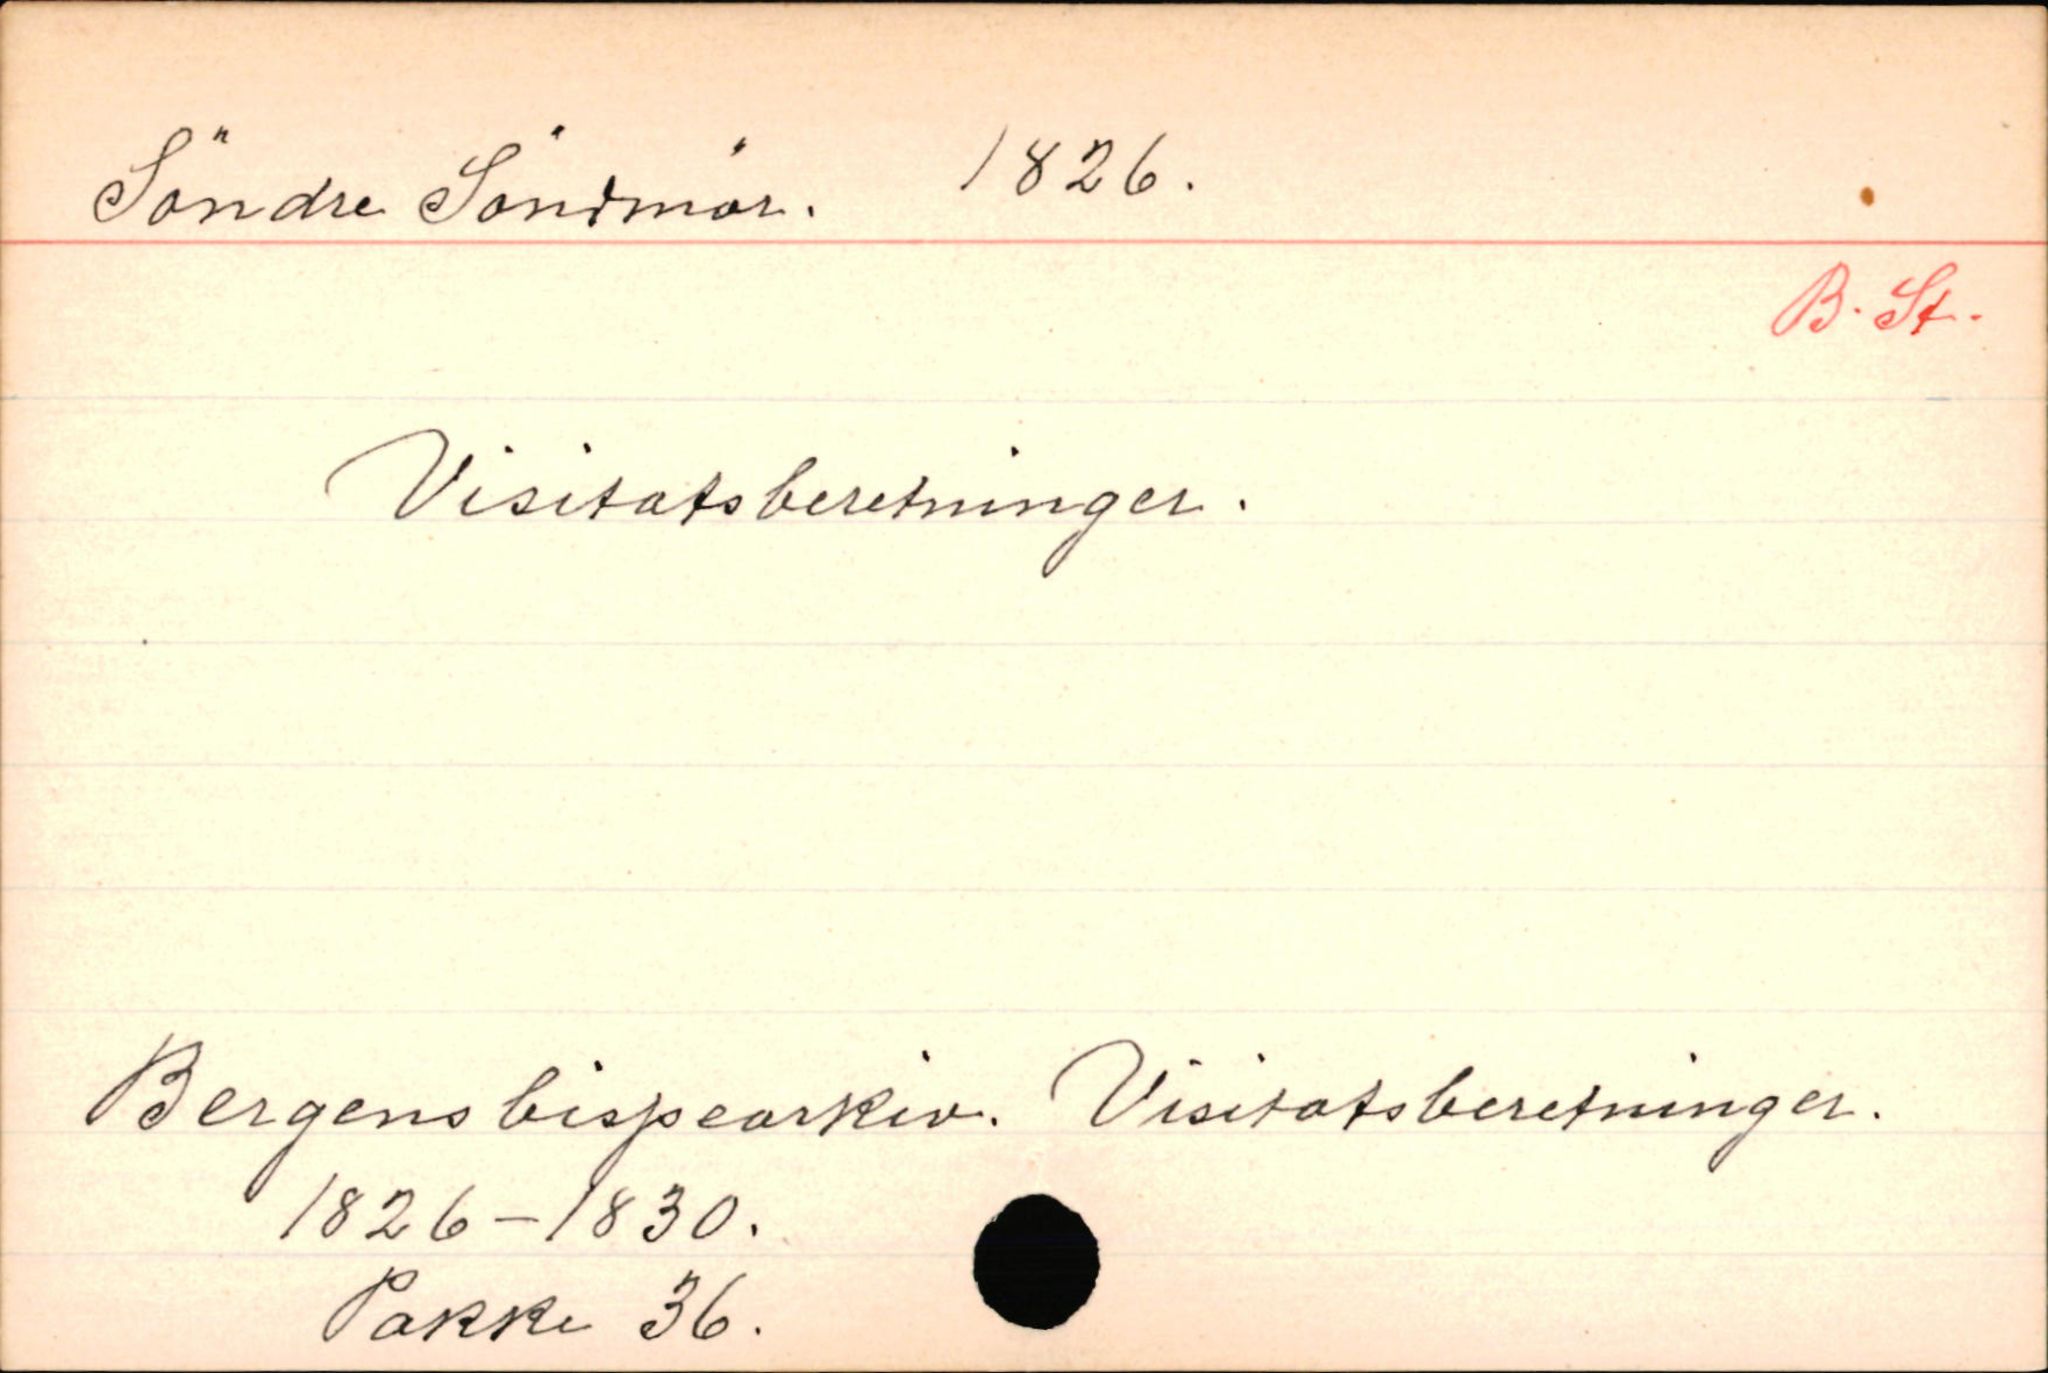 Söndre Söndmör. 1826.
B. St.
Visitatsberetninger.
Bergens bispearkiv. Visitatsberetninger.
1826-1830.
Pakke 36.